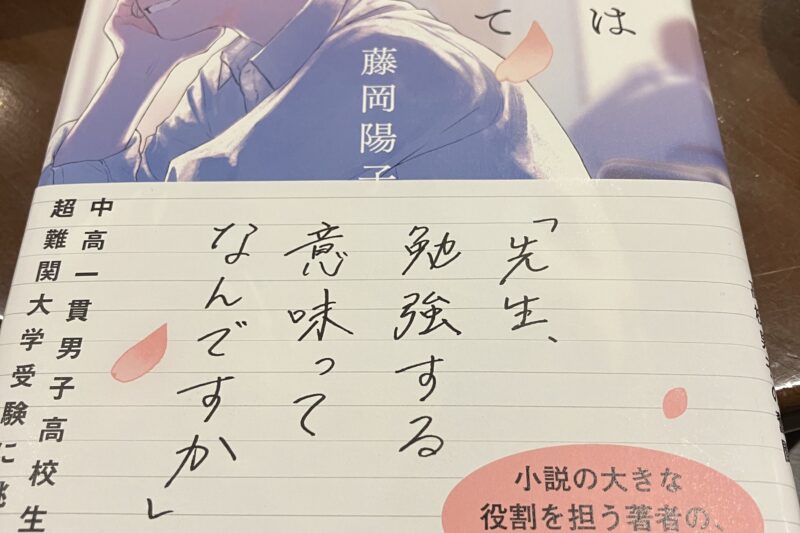 は
て
藤岡陽子
「先生、
勉強する
意味って
なんですか」
中高一貫男子高校生
超難関大学受験に挑
小説の大きな
役割を担う著者の、